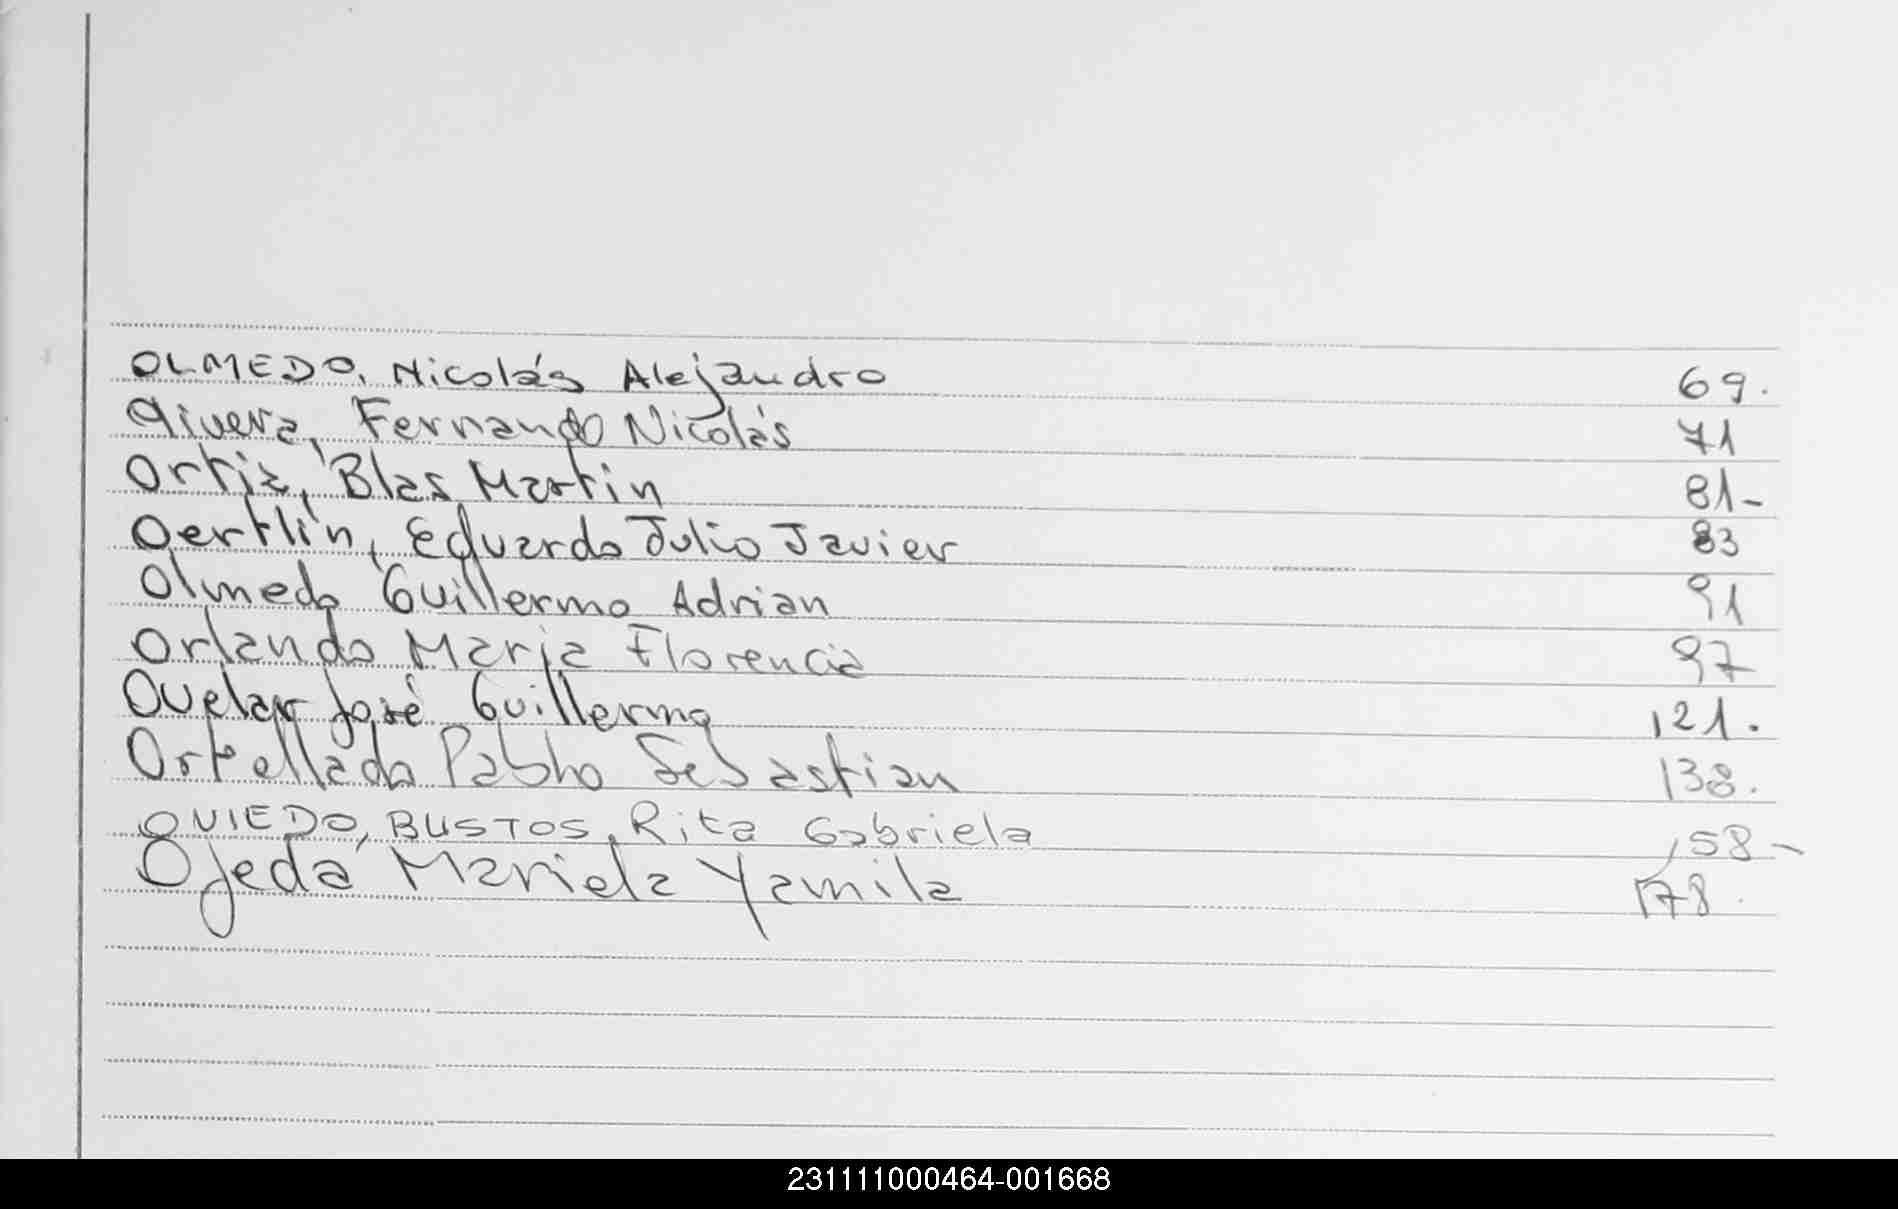 OLMEDO, Nicolás Alejandro 69.
Olivera, Fernando Nicolás 71
Ortiz, Blas Martin 81-
Oertlin, Eduardo Julio Javier 83
Olmedo Guillermo Adrian 91
Orlando Maria Florencia 97
Ovelar José Guillermo 121.
Ortellado Pablo Sebastian 138.
OVIEDO, BUSTOS, Rita Gabriela 158-
Ojeda Mariela Yamila 178.
231111000464-001668